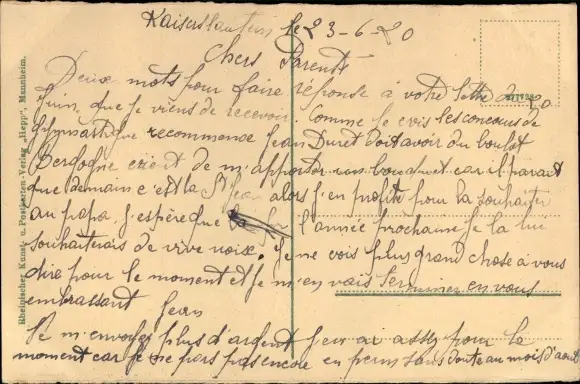 Kaiserslautern le 23-6-20
Chers Parents
Deux mots pour faire réponse à votre lettre du 20
Juin, que je viens de recevoir. Comme je vois les concours de
gymnastique recommence Jean Duret doit avoir du boulot
Bergogne vient de m'apporter un bouquet car il parait
que demain c'est la St Jean alors j'en profite pour la souhaiter
au papa. J'espère que l'année prochaine je la lui
souhaiterais de vive voix. Je ne vois plus grand chose à vous
dire pour le moment et je m'en vais terminer en vous
embrassant Jean
Ne m'envoyez plus d'argent j'en ai assez pour le
moment car je ne pars pas encore en perm sans doute au mois d'aout
Rheinischer Kunst- u. Postkarten-Verlag „Hepp", Mannheim.